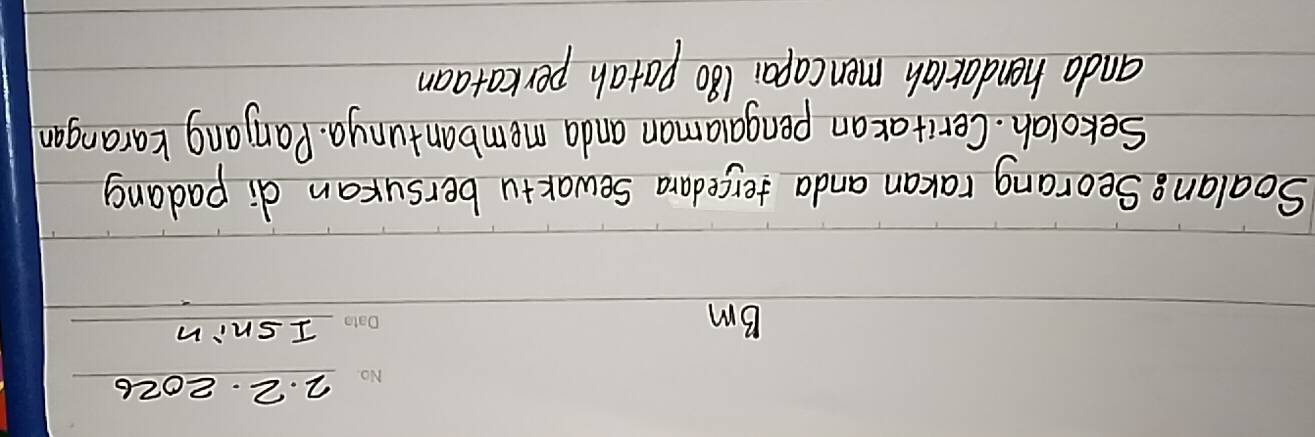 No. 2.2.2026
Date Isnin
Bm
Soalan: Seorang rakan anda tercedera sewaktu bersukan di padang
Sekolah. Ceritakan pengalaman anda membantunya. Panjang karangan
anda hendaklah mencapai 180 patah perkataan